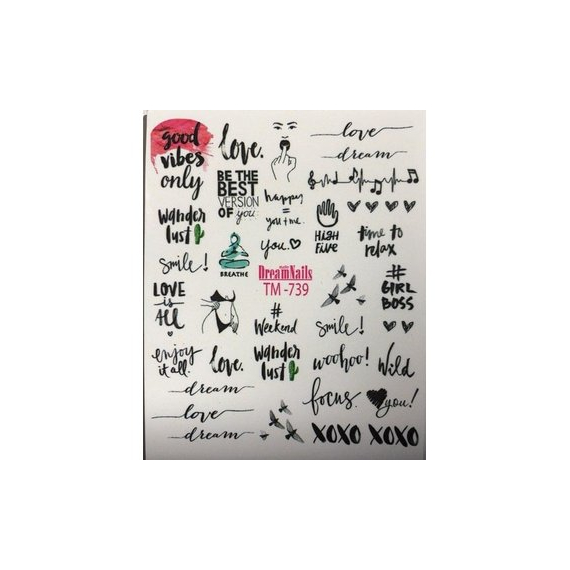 good
vibes
only
love.
love
dream
BE THE
BEST
VERSION
OF you
happy
=
you + me.
wander
lust
you.
HIGH
FIVE
time to
relax
smile!
BREATHE
DreamNails
TM -739
#
GIRL
BOSS
LOVE
is
ALL
#
Weekend
smile!
enjoy
it all.
love.
wander
lust
woohoo!
Wild
dream
love
dream
focus.
you!
XOXO XOXO